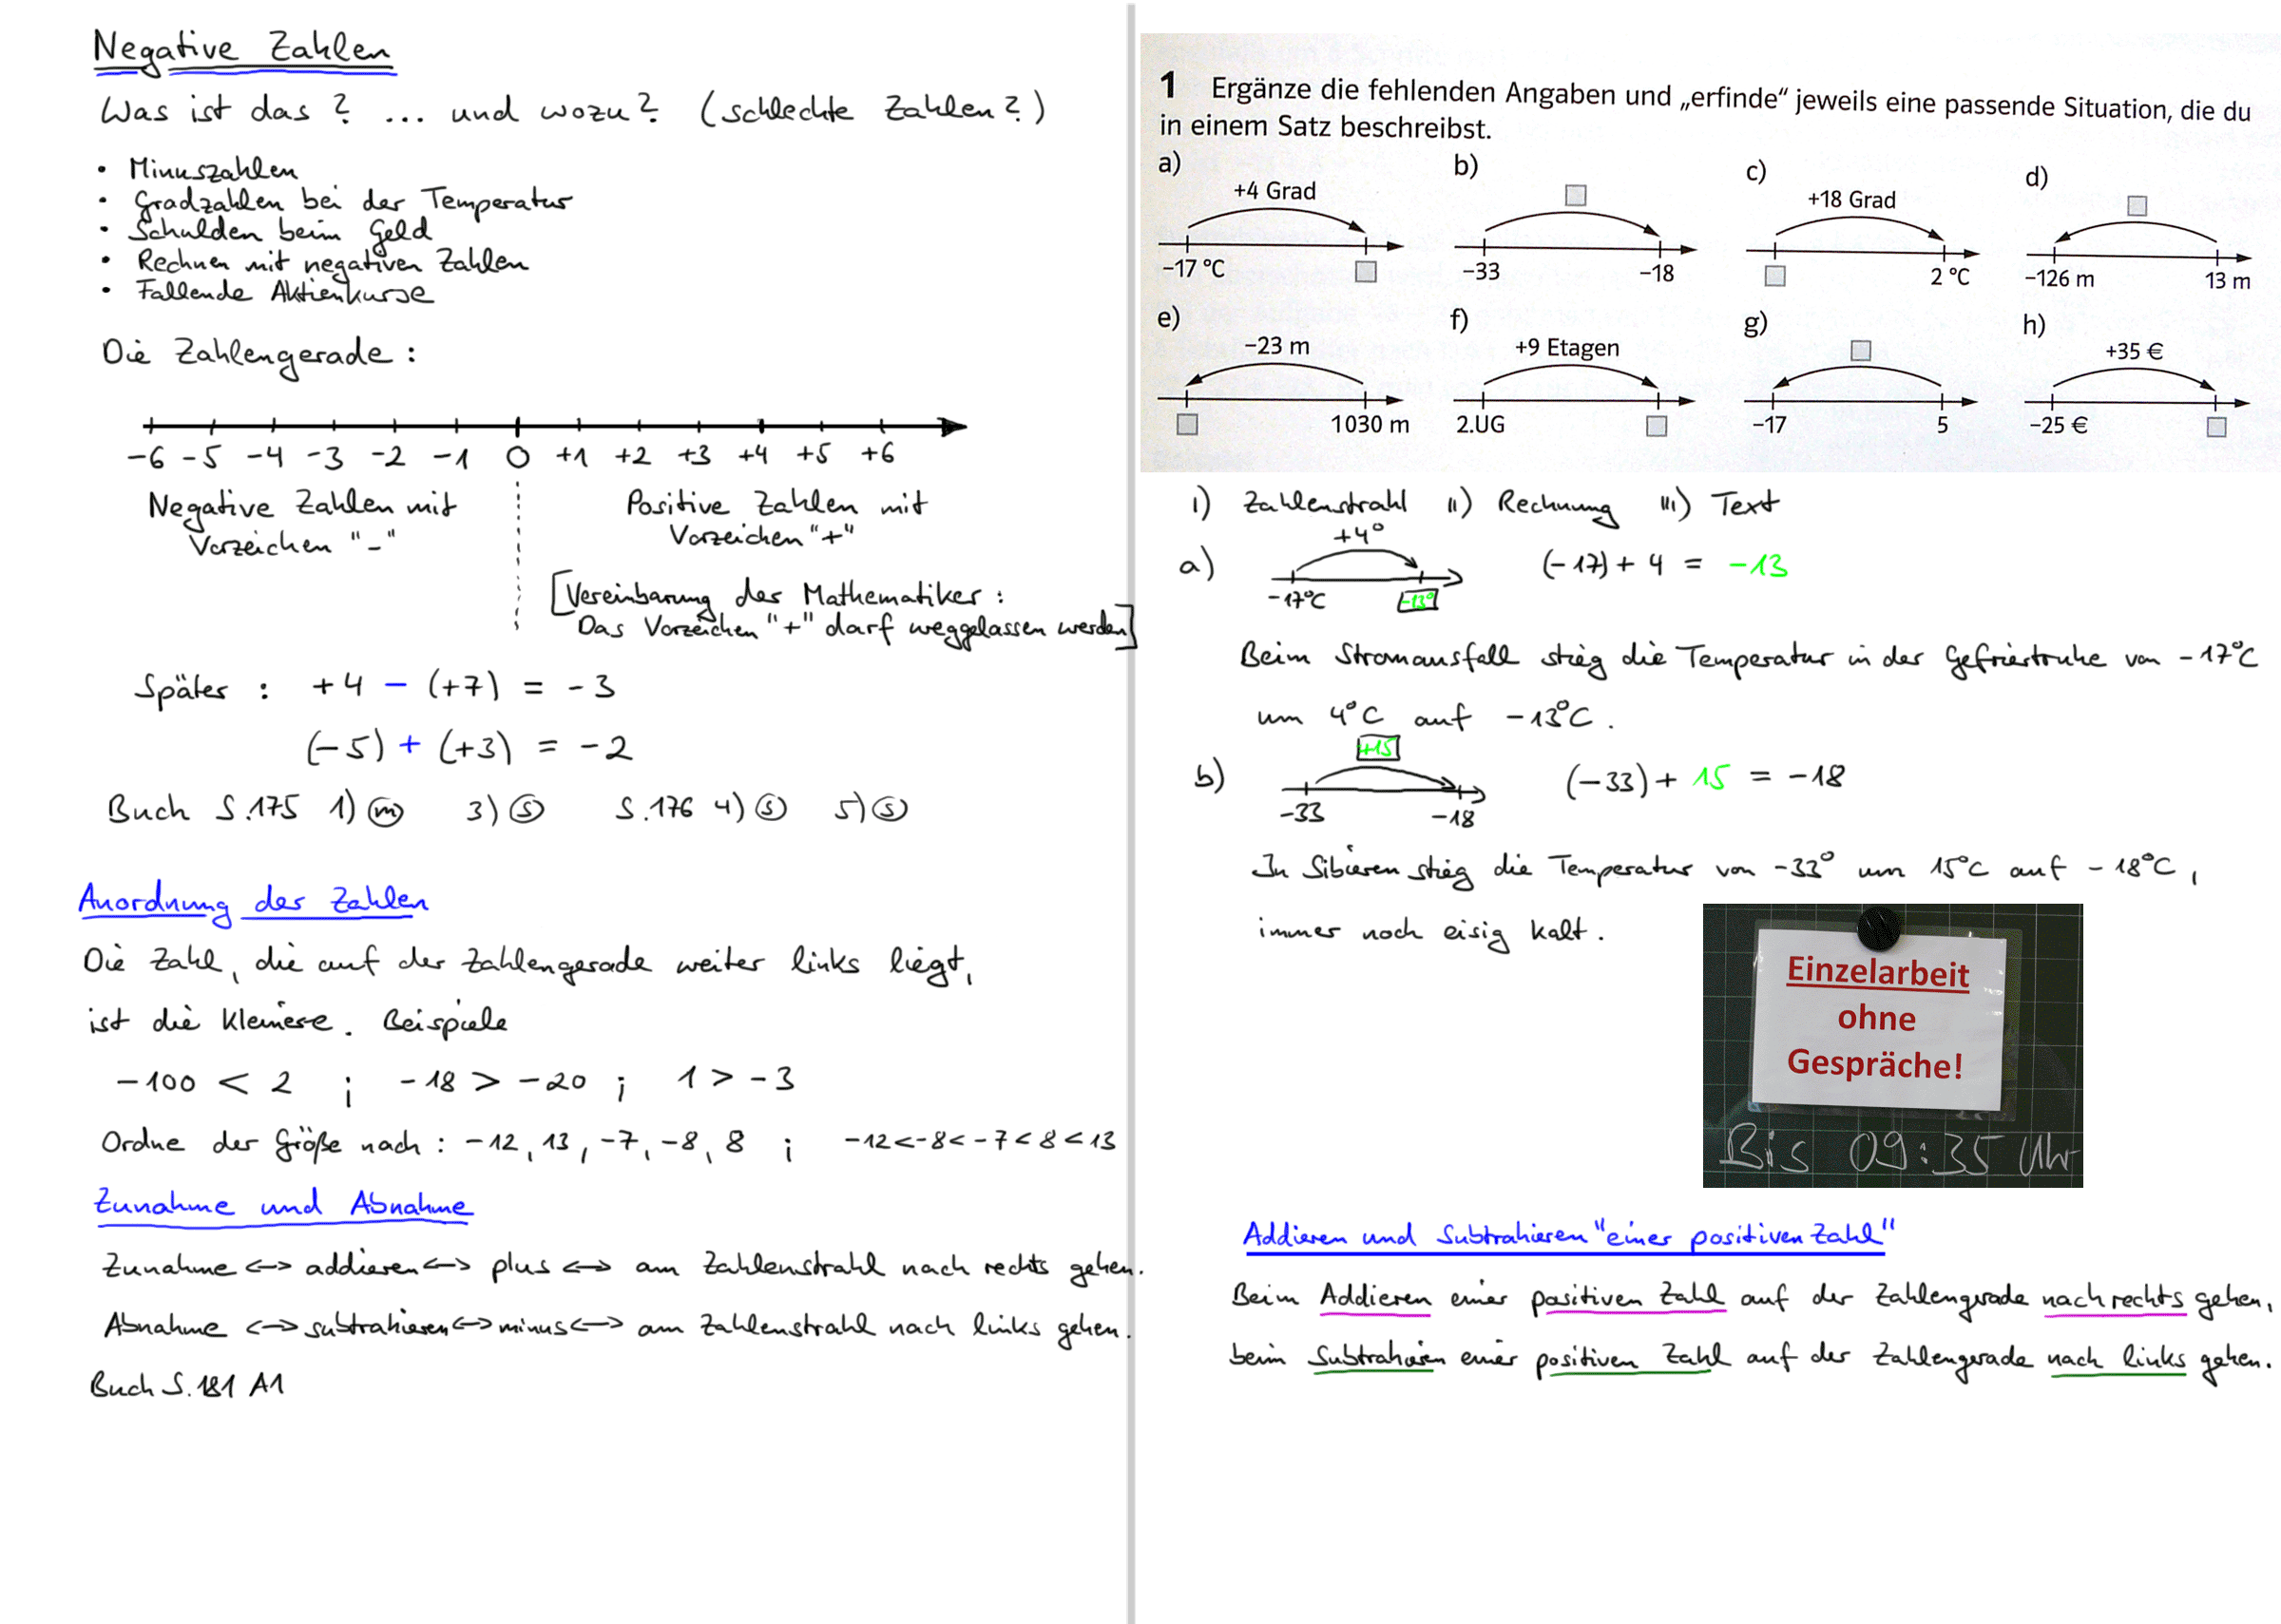 Negative Zahlen
Was ist das? ... und wozu? (schlechte Zahlen?)
• Minuszahlen
• Gradzahlen bei der Temperatur
• Schulden beim Geld
• Rechnen mit negativen Zahlen
• Fallende Aktienkurse
Die Zahlengerade:
-6 -5 -4 -3 -2 -1 0 +1 +2 +3 +4 +5 +6
Negative Zahlen mit
Vorzeichen "-"
Positive Zahlen mit
Vorzeichen "+"
[Vereinbarung der Mathematiker:
Das Vorzeichen "+" darf weggelassen werden]
Später: +4 - (+7) = -3
(-5) + (+3) = -2
Buch S.175 1) m 3) s S.176 4) s 5) s
Anordnung der Zahlen
Die Zahl, die auf der Zahlengerade weiter links liegt,
ist die kleinere. Beispiele
-100 < 2 ; -18 > -20 ; 1 > -3
Ordne der Größe nach: -12, 13, -7, -8, 8 ; -12<-8<-7<8<13
Zunahme und Abnahme
Zunahme <-> addieren <-> plus <-> am Zahlenstrahl nach rechts gehen.
Abnahme <-> subtrahieren <-> minus <-> am Zahlenstrahl nach links gehen.
Buch S.181 A1
1 Ergänze die fehlenden Angaben und „erfinde“ jeweils eine passende Situation, die du
in einem Satz beschreibst.
a) b) c) d)
+4 Grad +18 Grad
-17 °C -33 -18 2 °C -126 m 13 m
e) f) g) h)
-23 m +9 Etagen +35 €
1030 m 2.UG -17 5 -25 €
I) Zahlenstrahl II) Rechnung III) Text
+4°
a) (-17) + 4 = -13
-17°C -13°
Beim Stromausfall stieg die Temperatur in der Gefriertruhe von -17°C
um 4°C auf -13°C.
+15
b) (-33) + 15 = -18
-33 -18
In Sibieren stieg die Temperatur von -33° um 15°C auf -18°C,
immer noch eisig kalt.
Einzelarbeit
ohne
Gespräche!
Bis 09:35 Uhr
Addieren und Subtrahieren "einer positiven Zahl"
Beim Addieren einer positiven Zahl auf der Zahlengerade nach rechts gehen,
beim Subtrahieren einer positiven Zahl auf der Zahlengerade nach links gehen.